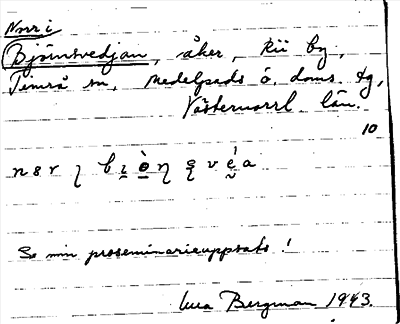 Norr i
Björnsvedjan, åker, Rii by,
Timrå sn, Medelpads ö. doms. tg,
Västernorrl. län.
10
Se min proseminarieuppsats!
Bergman 1943.